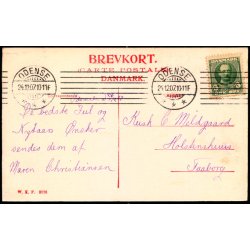 BREVKORT.
CARTE POSTALE
DANMARK.
ODENSE
24.12.07.10-11F
ODENSE
24.12.07.10-11F
De bedste Jul og
Nytaars Ønsker
sendes dem af
Maren Christiansen
Frøk C Meldgaard
Holckenhuus
Faaborg
W. K. F.